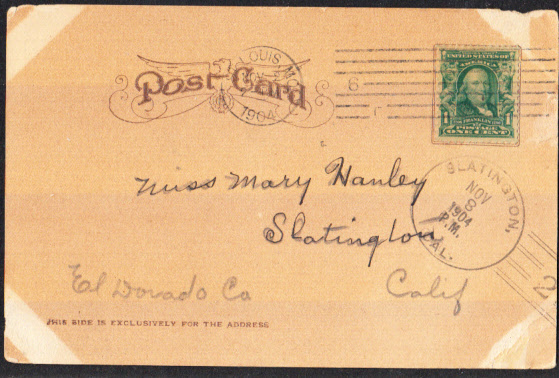 Post Card
OUIS MO
1904
6
UNITED STATES OF
AMERICA
1 1
POSTAGE
ONE CENT
Miss Mary Hanley
Slatington
SLATINGTON,
NOV
8
1904
P.M.
CAL.
El Dorado Co Calif
2
THIS SIDE IS EXCLUSIVELY FOR THE ADDRESS